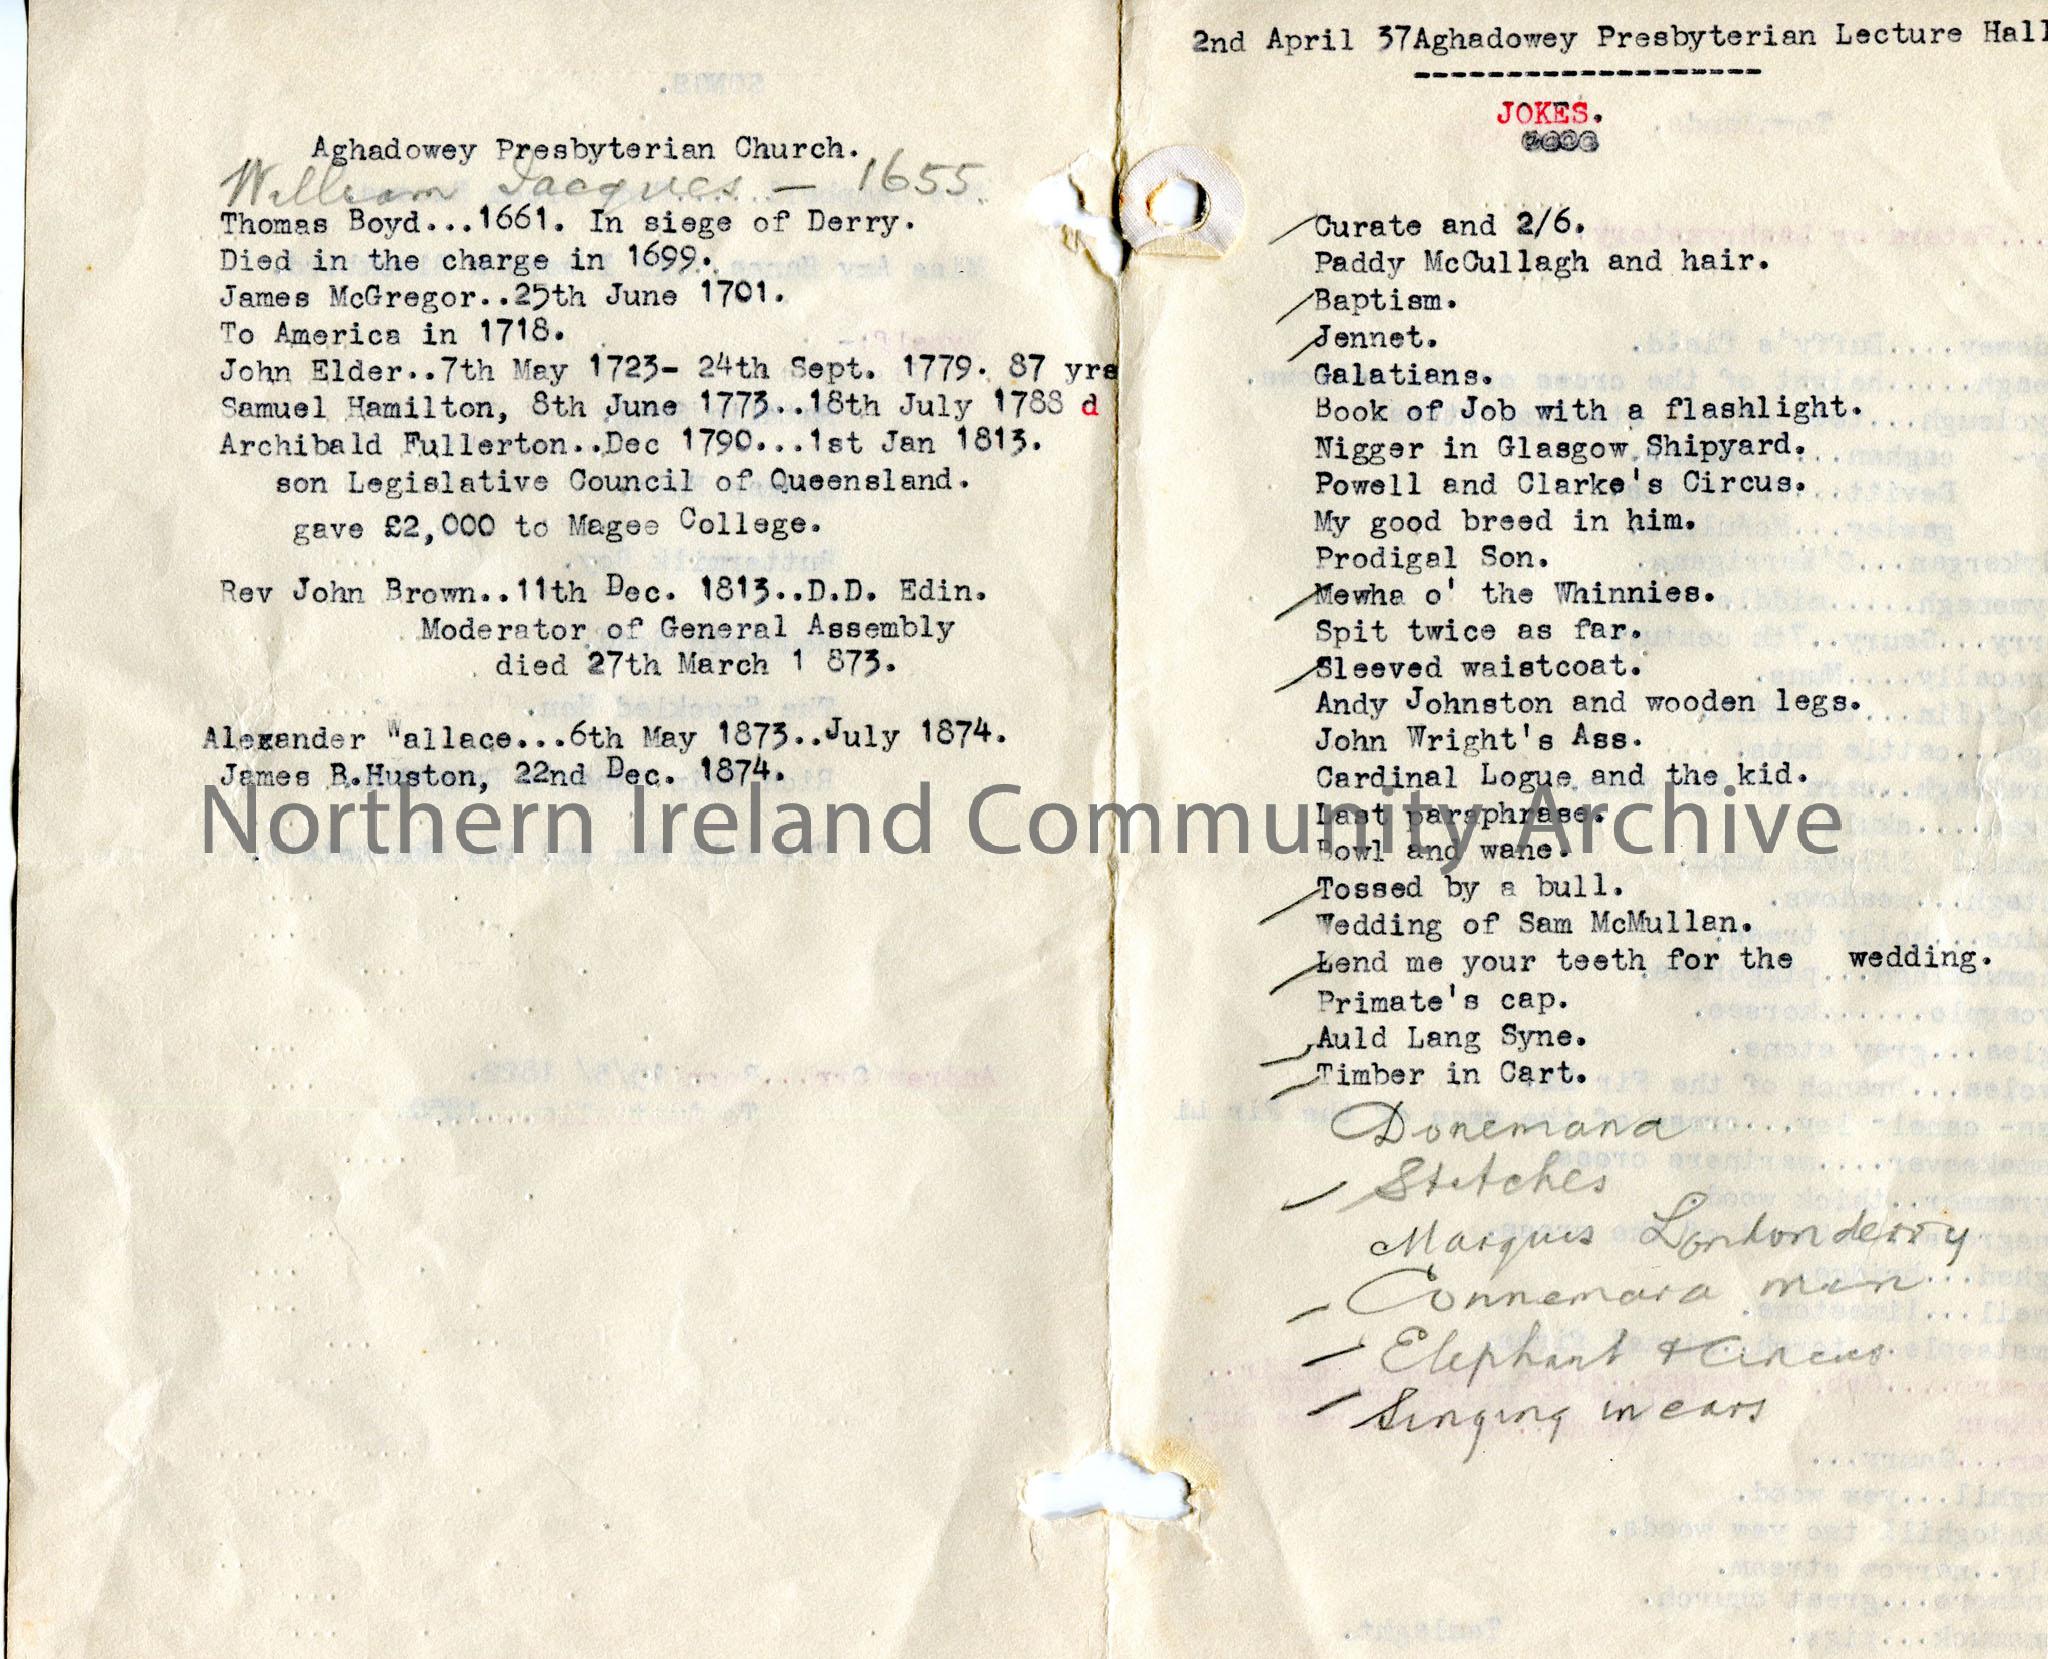 Aghadowey Presbyterian Church.
William Jacques - 1655
Thomas Boyd...1661. In siege of Derry.
Died in the charge in 1699.
James McGregor..25th June 1701.
To America in 1718.
John Elder..7th May 1723- 24th Sept. 1779. 87 yrs
Samuel Hamilton, 8th June 1773..18th July 1788 d
Archibald Fullerton..Dec 1790...1st Jan 1813.
son Legislative Council of Queensland.
gave £2,000 to Magee College.
Rev John Brown..11th Dec. 1813..D.D. Edin.
Moderator of General Assembly
died 27th March 1 873.
Alexander Wallace...6th May 1873..July 1874.
James B.Huston, 22nd Dec. 1874.
2nd April 37Aghadowey Presbyterian Lecture Hall
JOKES.
Curate and 2/6.
Paddy McCullagh and hair.
Baptism.
Jennet.
Galatians.
Book of Job with a flashlight.
Nigger in Glasgow Shipyard.
Powell and Clarke's Circus.
My good breed in him.
Prodigal Son.
Mewha o' the Whinnies.
Spit twice as far.
Sleeved waistcoat.
Andy Johnston and wooden legs.
John Wright's Ass.
Cardinal Logue and the kid.
Last paraphrase.
Bowl and wane.
Tossed by a bull.
Wedding of Sam McMullan.
Lend me your teeth for the wedding.
Primate's cap.
Auld Lang Syne.
Timber in Cart.
Donemana
Stitches
Marquis Londonderry
Connemara man
Elephant & Circus
Singing in ears
Northern Ireland Community Archive